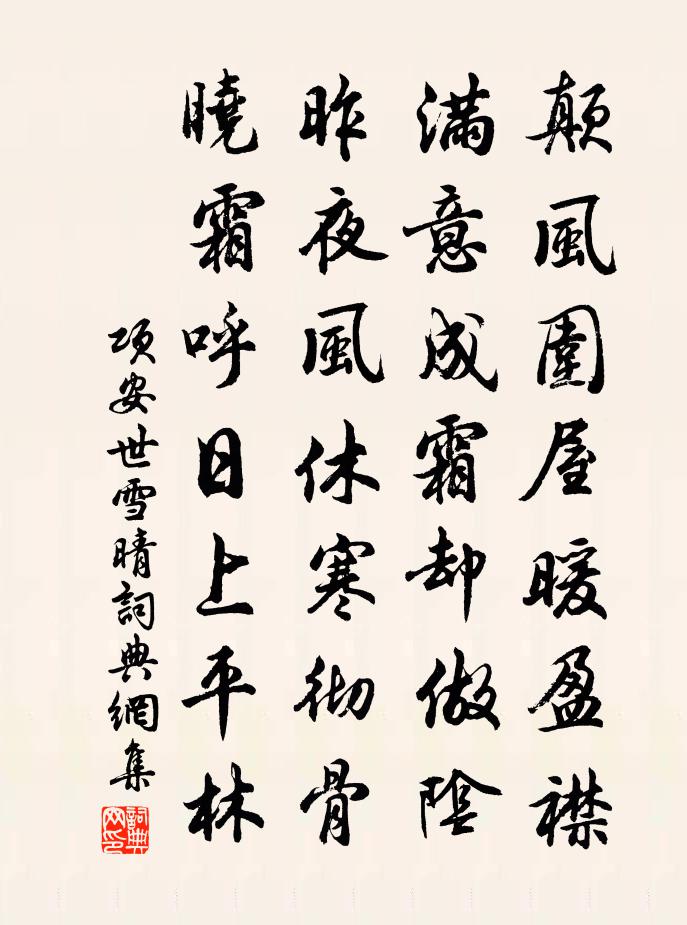 顛風圍屋暖盈襟
滿意成霜却做陰
昨夜風休寒徹骨
曉霜呼日上平林
項安世雪晴詞典網集
詞典網印